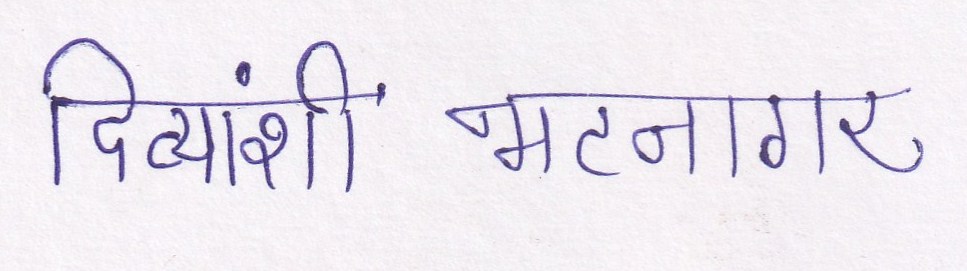 दिव्यांशीं भटनागर